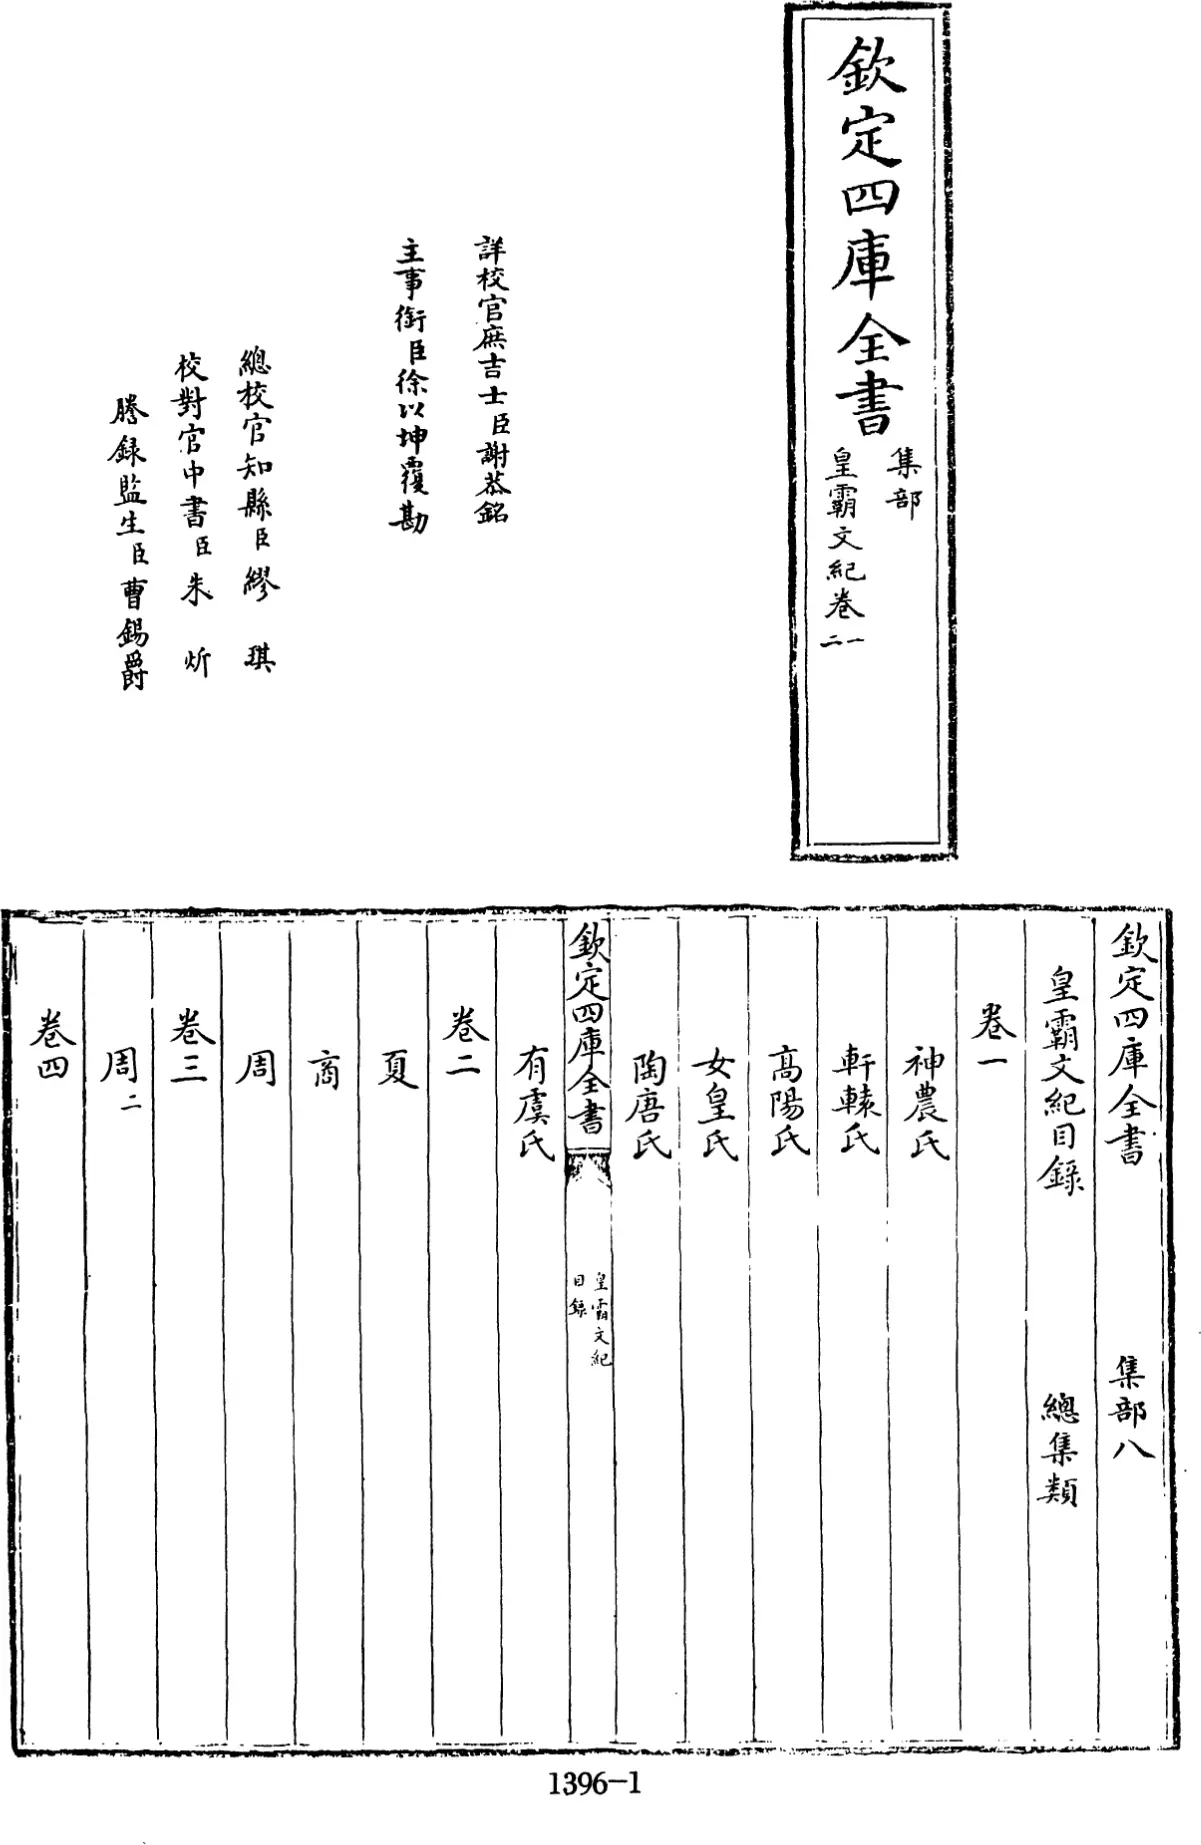 欽定四庫全書
集部
皇霸文紀卷一
二
詳校官庶吉士臣謝恭銘
主事銜臣徐以坤覆勘
總校官知縣臣繆琪
校對官中書臣朱炘
謄錄監生臣曹錫爵
欽定四庫全書 集部八
皇霸文紀目錄 總集類
卷一
神農氏
軒轅氏
高陽氏
女皇氏
陶唐氏
欽定四庫全書
皇霸文紀
目錄
有虞氏
卷二
夏
商
周
卷三
周二
卷四
1396-1